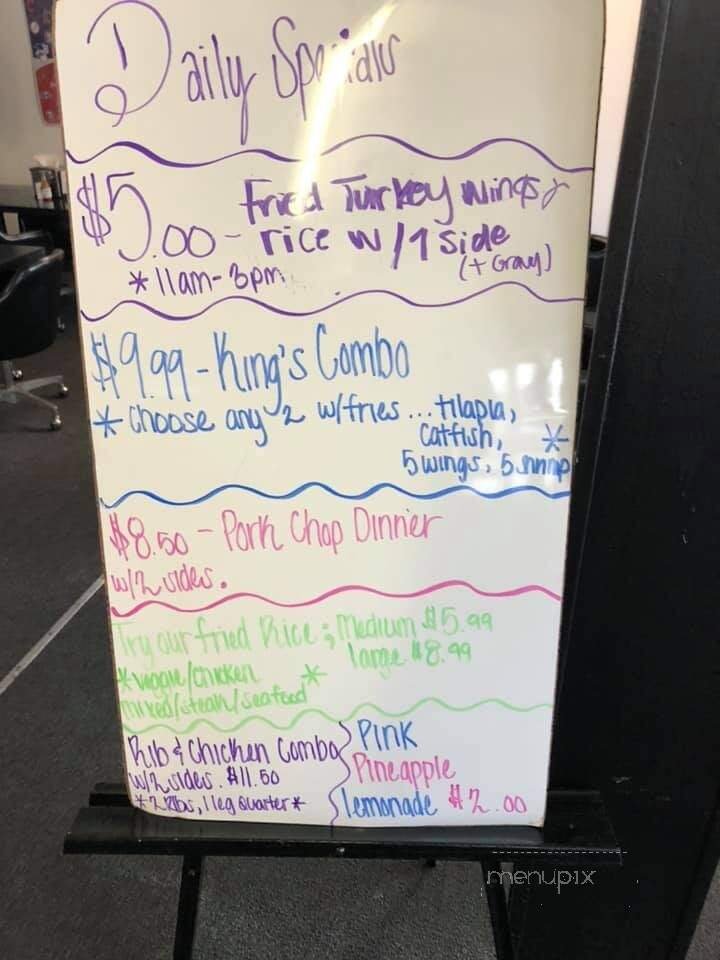 Daily Specials
$5.00 - Fried Turkey Wings &
rice w/1 side
(+ Gravy)
*11am-3pm
$9.99 - King's Combo
* Choose any 2 w/fries ... tilapia,
catfish, *
5 wings, 5 shrimp
$8.50 - Pork Chop Dinner
w/2 sides.
Try our fried Rice; Medium $5.99
large $8.99
*veggie/chicken *
mixed/steak/seafood
Rib & Chicken Combo
w/2 sides. $11.50
*2 ribs, 1 leg quarter*
Pink
Pineapple
lemonade $2.00
menupix